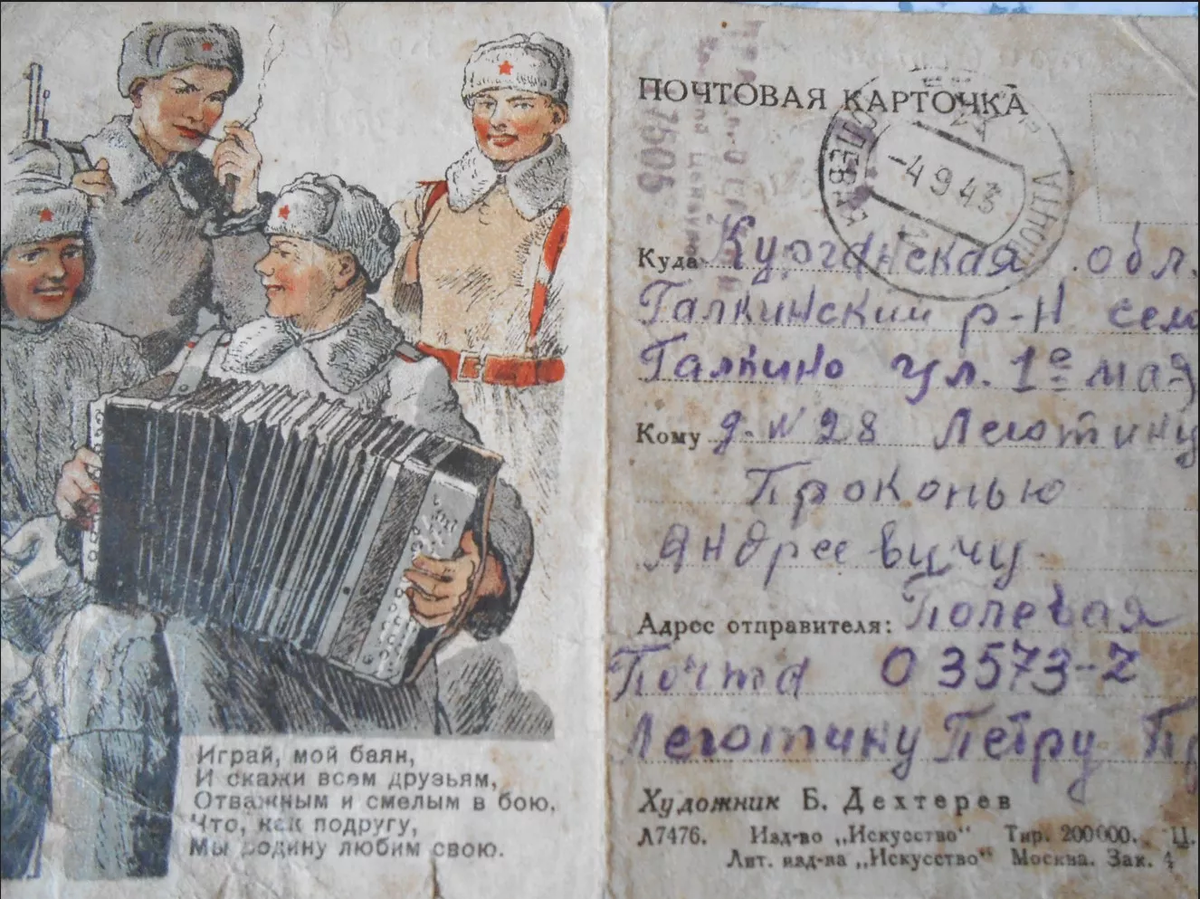 Играй, мой баян,
И скажи всем друзьям,
Отважным и смелым в бою,
Что, как подругу,
Мы родину любим свою.
ПОЧТОВАЯ КАРТОЧКА
-4 9 43
ПОЧТА
Куда Курганская обл.
Галкинский р-н село
Галкино ул. 1е мая
Кому д. N 28 Леготину
Проконью
Андреевичу
Адрес отправителя: Полевая
Почта 03573-Z
Леготину Петру Пр
Художник Б. Дехтерев
Л7476. Изд-во „Искусство" Тир. 200000. Ц.
Лит. изд-ва „Искусство" Москва. Зак. 4